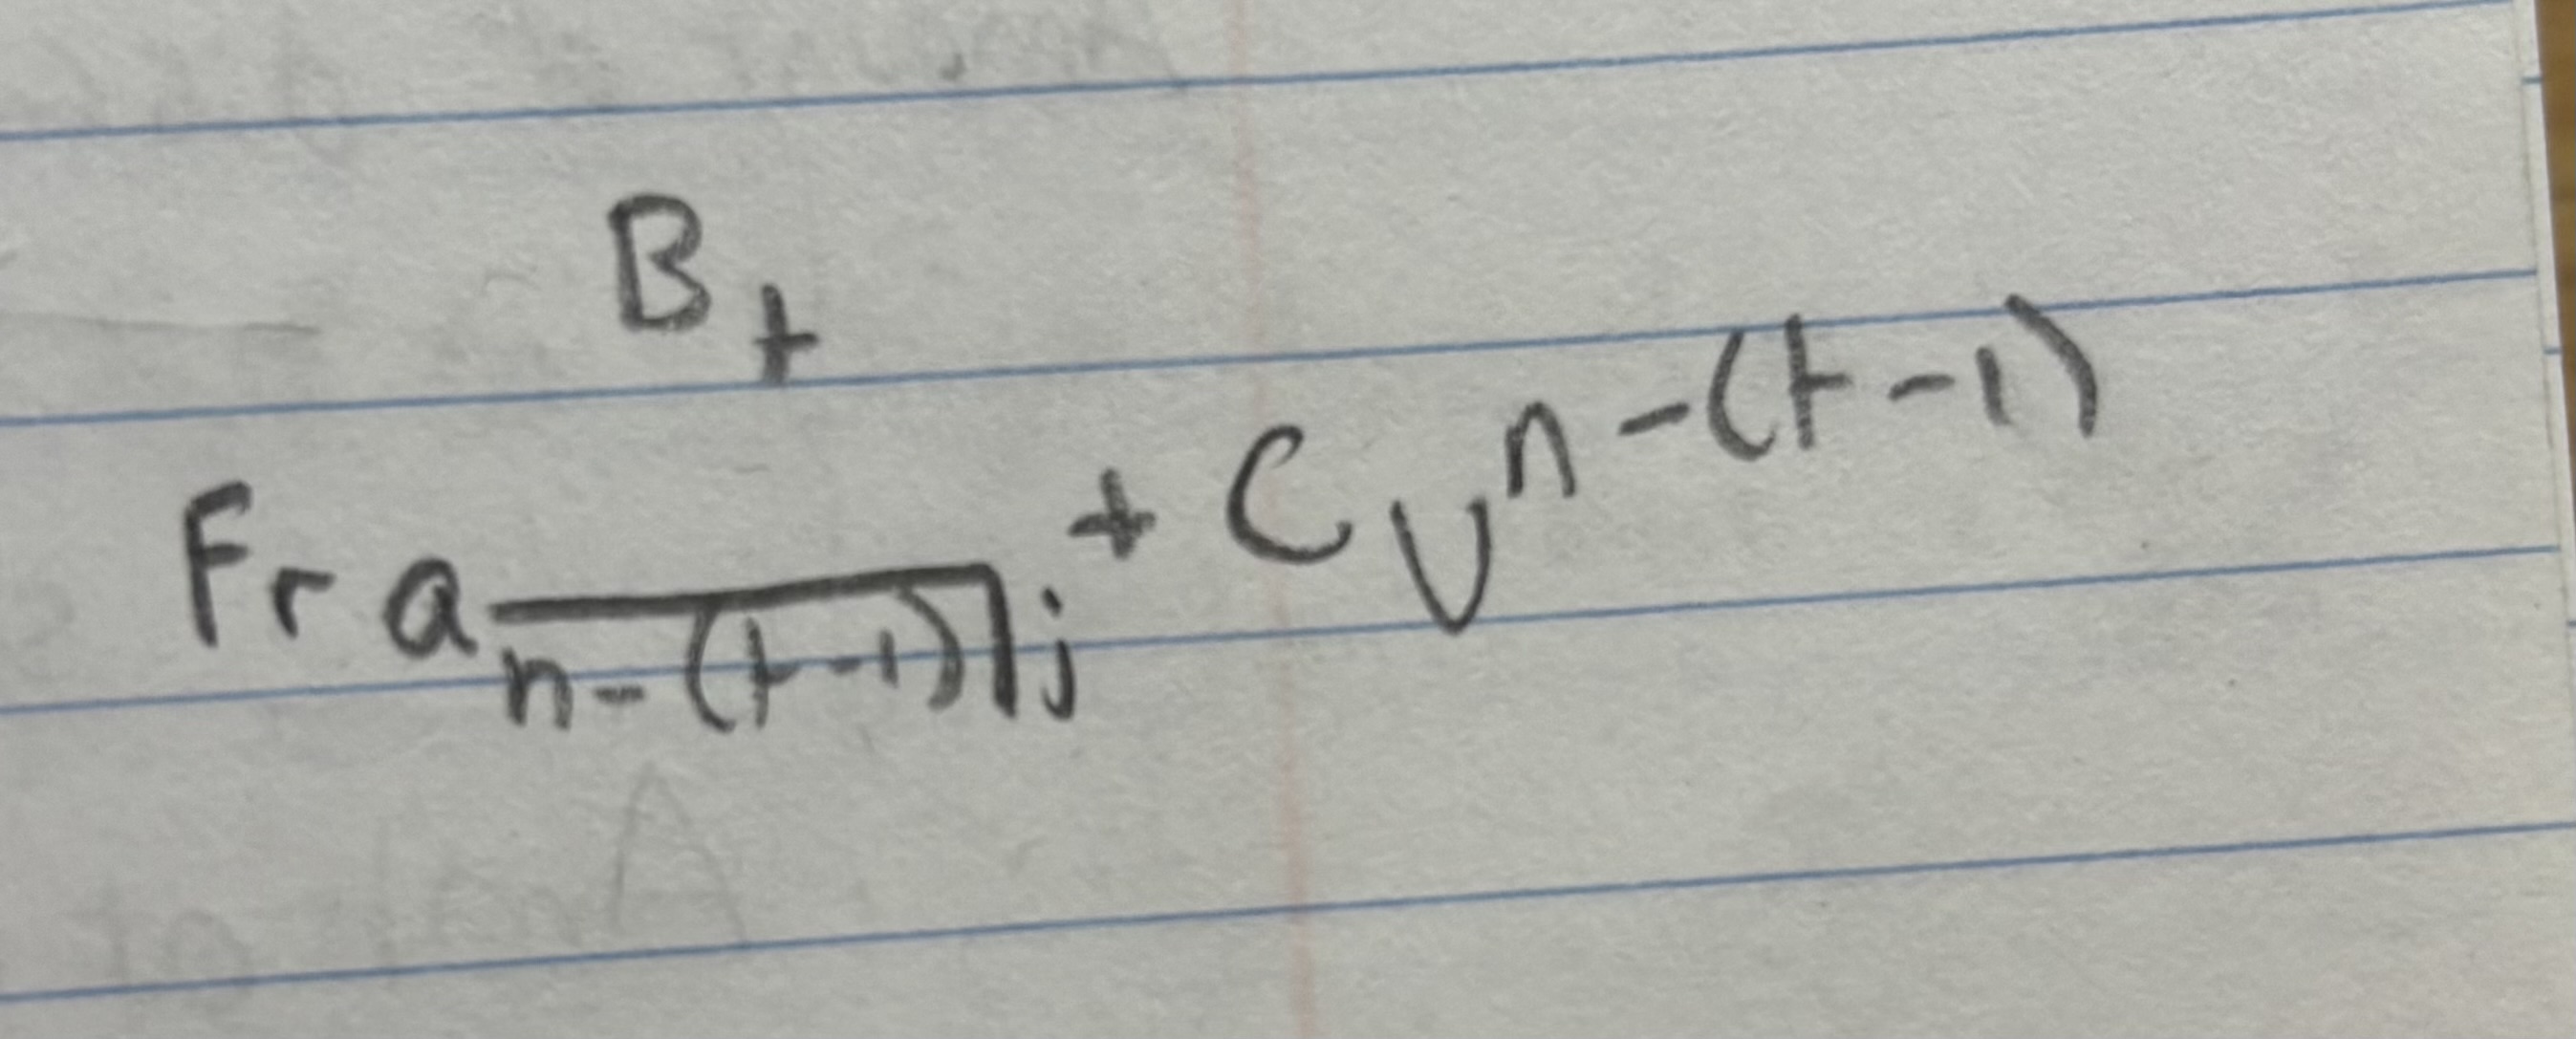 B_t
Fr a_{\overline{n-(t-1)}|j} + Cv^{n-(t-1)}